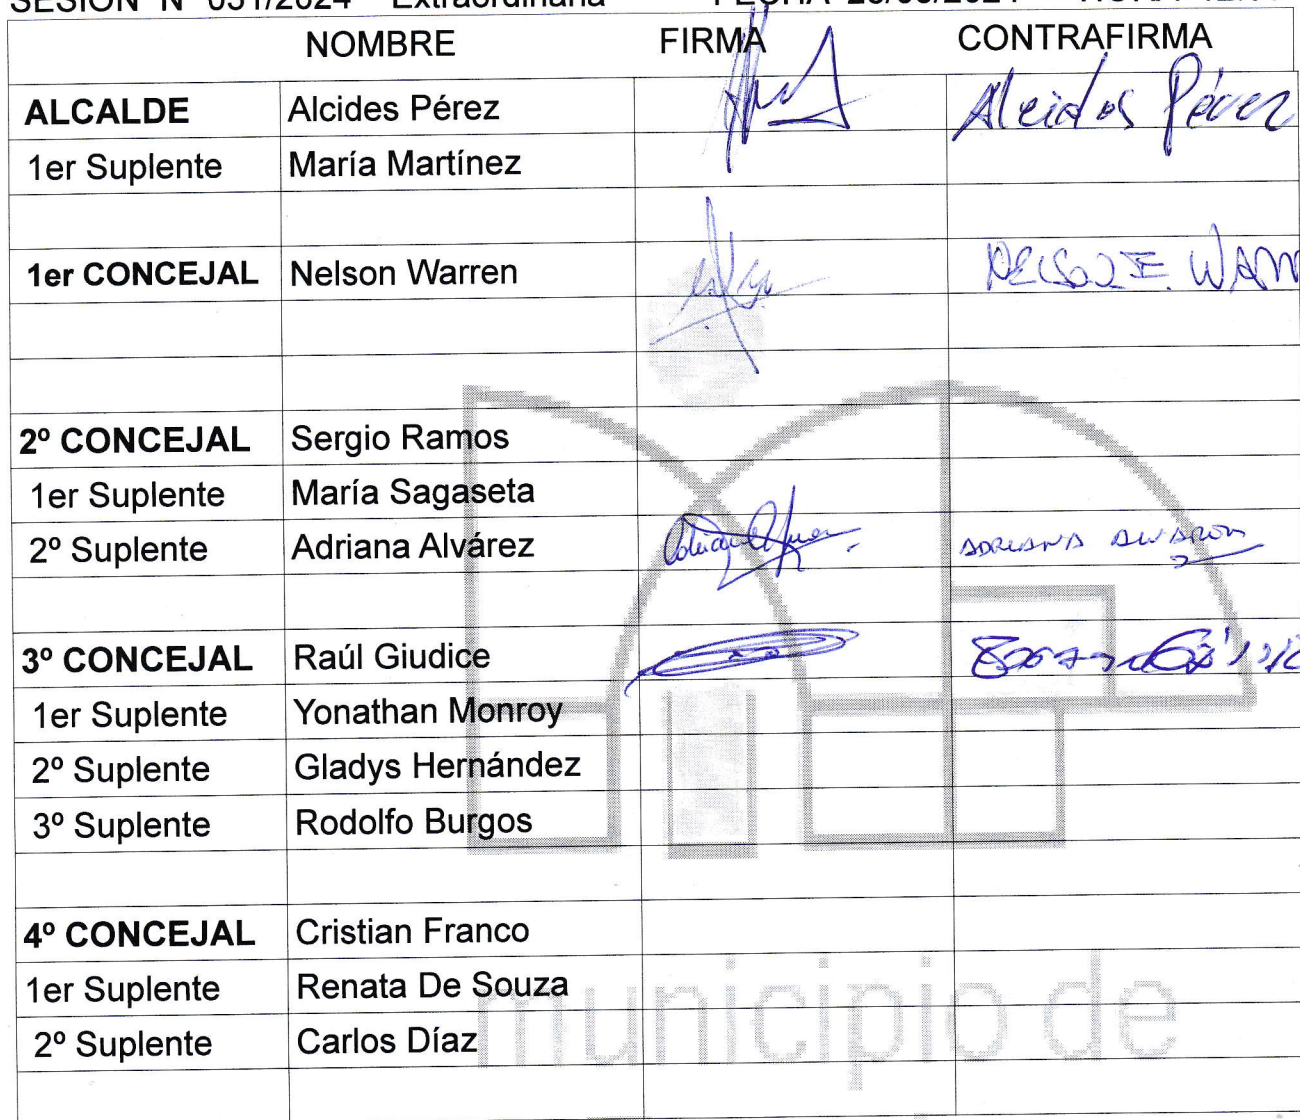 SESIÓN Nº 031/2024 Extraordinaria FECHA HORA
NOMBRE FIRMA CONTRAFIRMA
ALCALDE Alcides Pérez Alcides Pérez
1er Suplente María Martínez
1er CONCEJAL Nelson Warren NELSON E. WARR
2º CONCEJAL Sergio Ramos
1er Suplente María Sagaseta
2º Suplente Adriana Alvárez ADRIANA ALVAREZ
3º CONCEJAL Raúl Giudice
1er Suplente Yonathan Monroy
2º Suplente Gladys Hernández
3º Suplente Rodolfo Burgos
4º CONCEJAL Cristian Franco
1er Suplente Renata De Souza
2º Suplente Carlos Díaz
municipio de